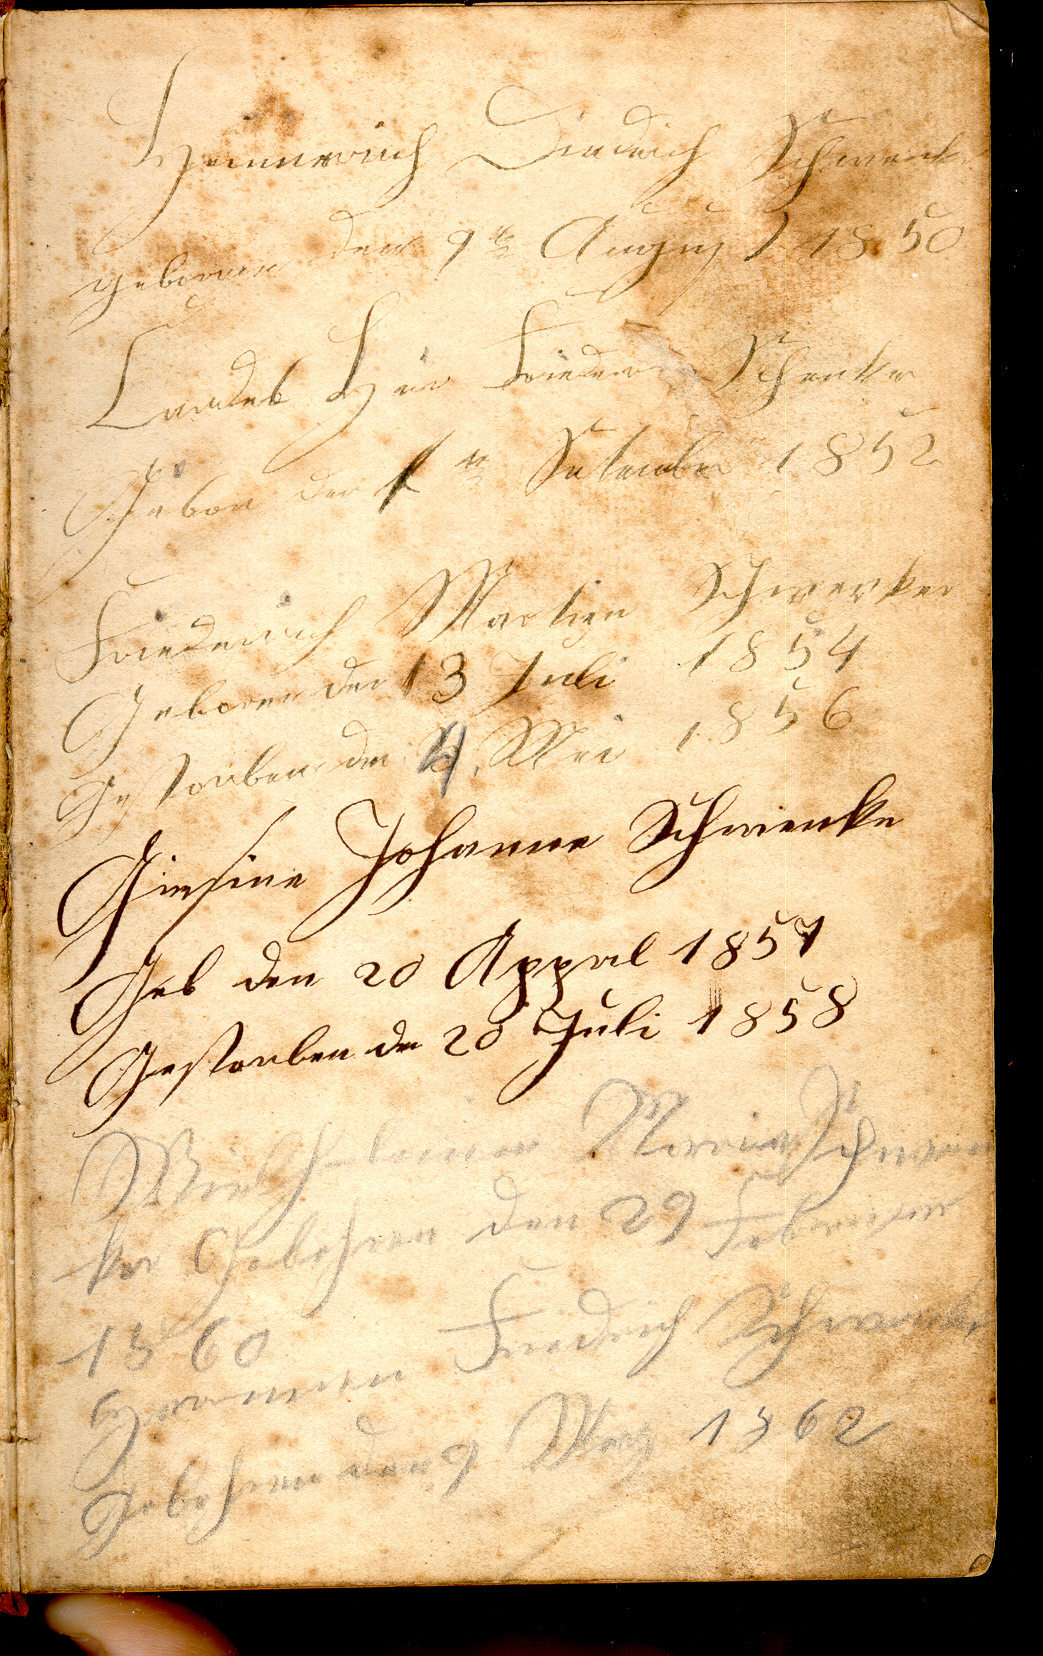 Heinnerich Diedrich Schwenke
geboren den 9te August 1850
Hein Frieder Schenke
Gebor den 1te September 1852
Friederich Martien Schwenker
Geboren den 13 Juli 1854
Gestorben den 4. Mei 1856
Giesine Johanne Schwienke
Geb den 20 Appral 1857
Gestorben de 20 Juli 1858
Wielhelmine Marie Schwen
ke Gebohren den 29 Februar
1860
Hermmen Friedrich Schwenke
Gebohren den 9 Merz 1862